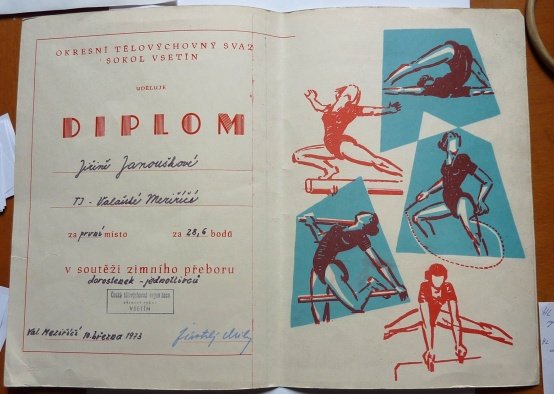 OKRESNÍ TĚLOVÝCHOVNÝ SVAZ
SOKOL VSETÍN
UDĚLUJE
DIPLOM
Jiřině Janouškové
TJ - Valašské Meziříčí
za prvni místo za 28,6 bodů
v soutěži zimního přeboru
dorostenek - jednotlivců
Česká tělovýchovná organisace
VSETÍN
Val. Meziříčí 10. března 1973